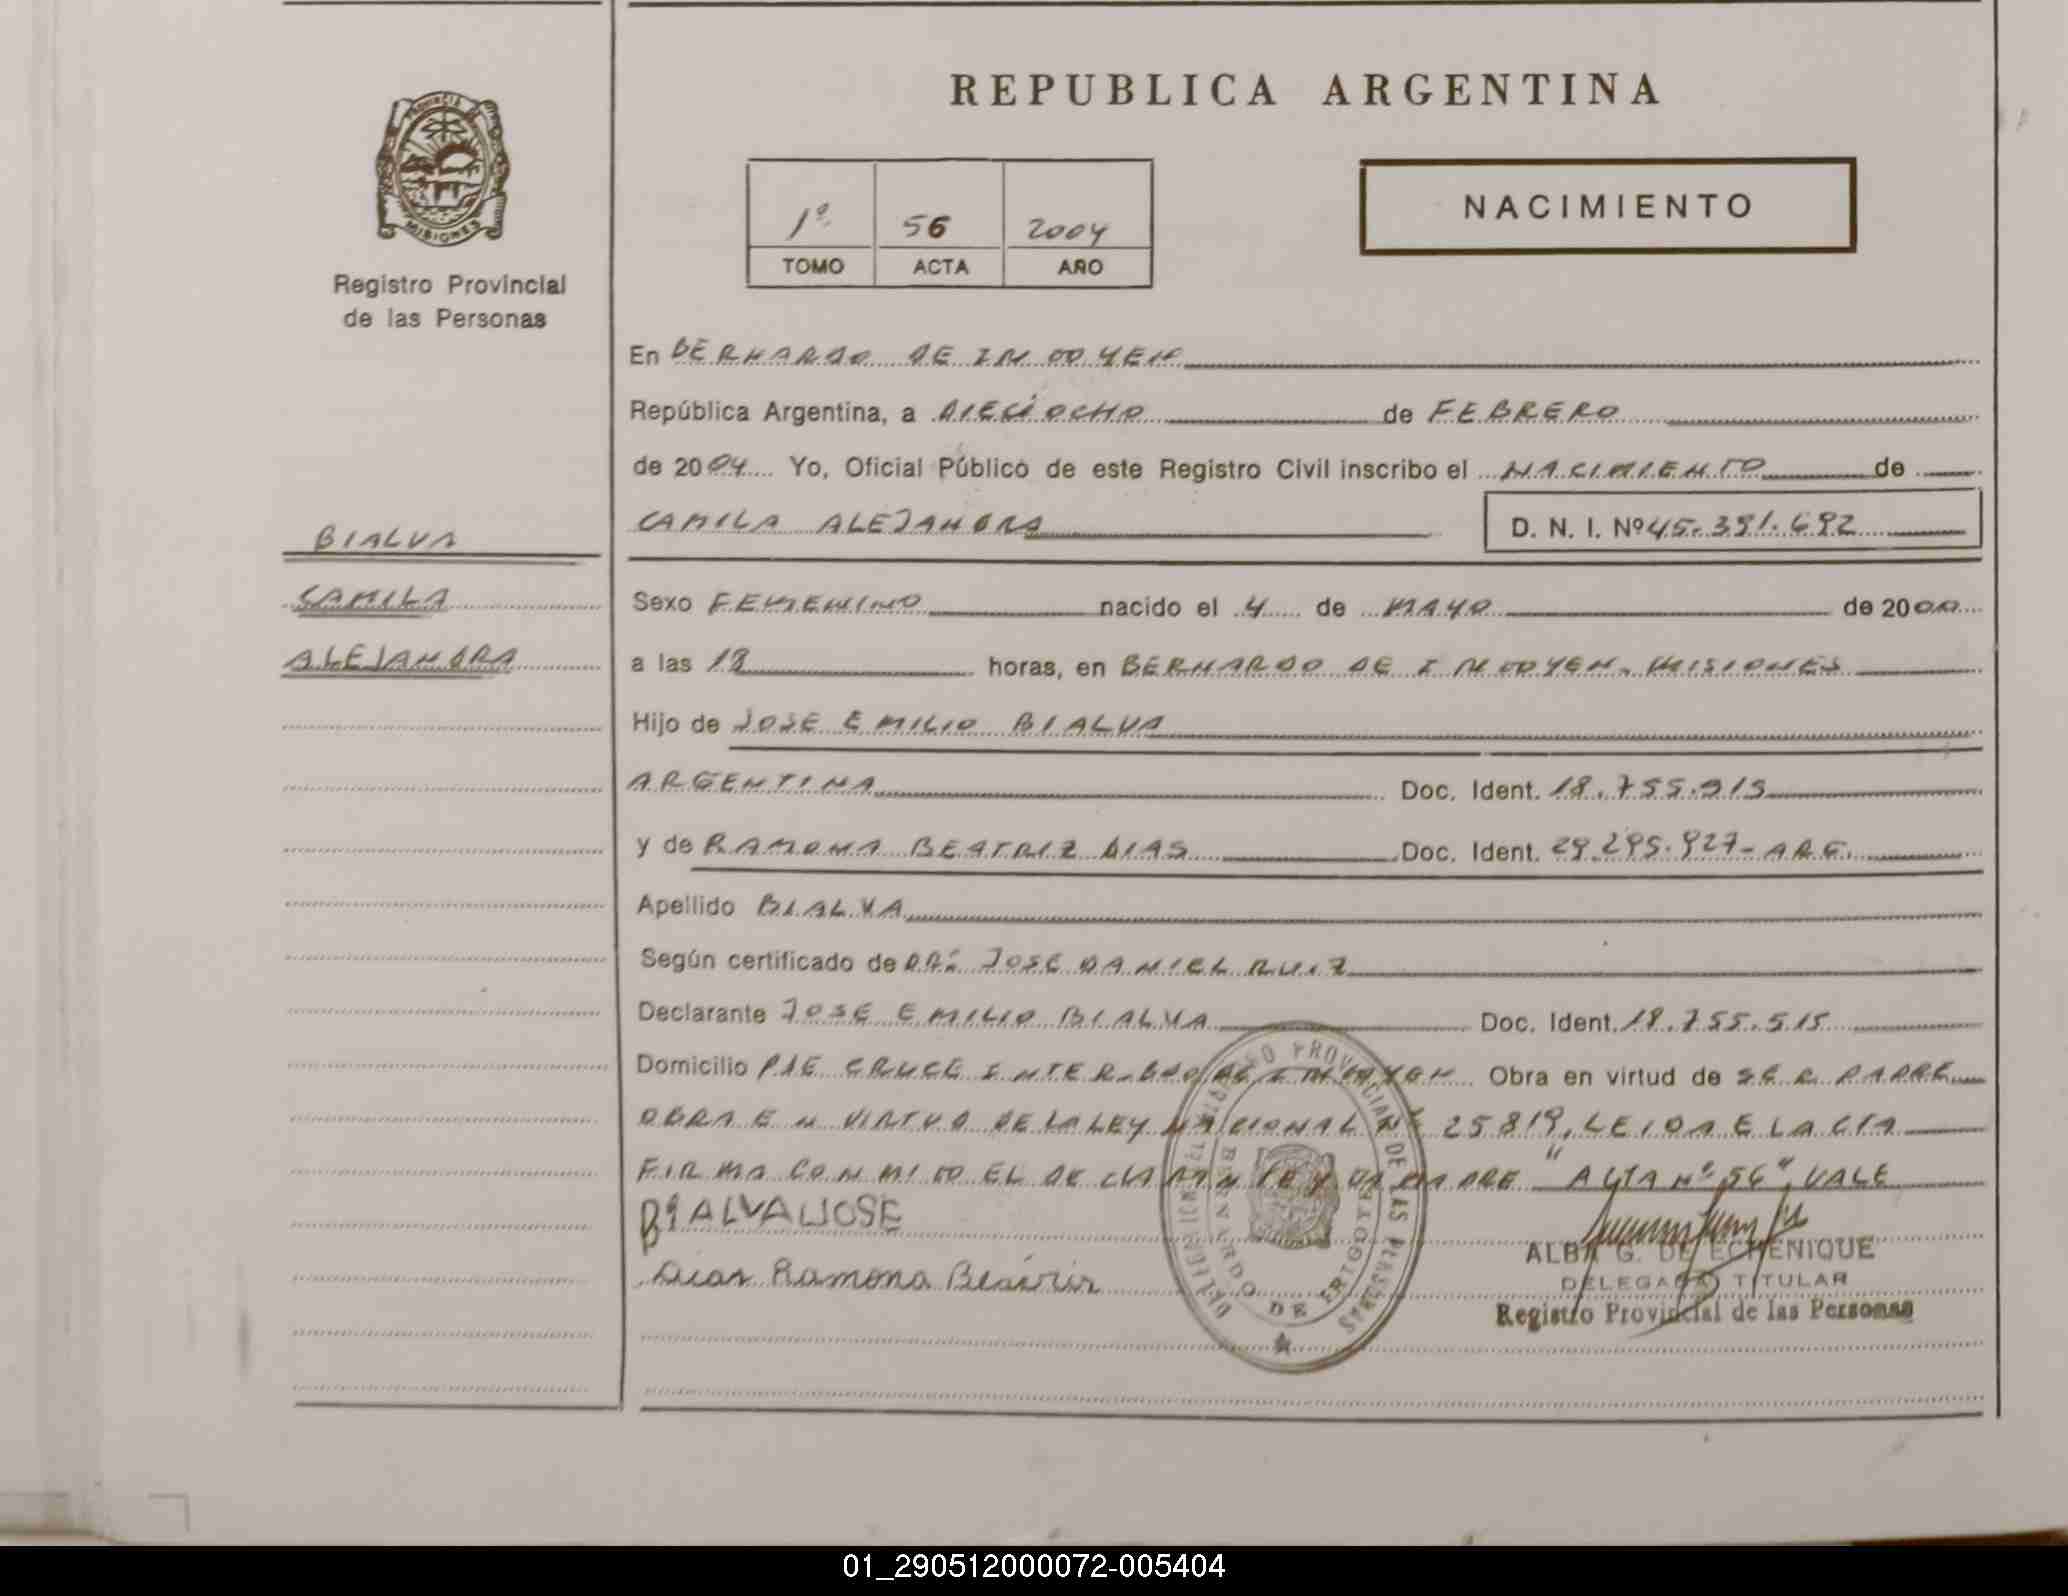 REPUBLICA ARGENTINA
PROVINCIA
MISIONES
Registro Provincial
de las Personas
NACIMIENTO
1º 56 2004
TOMO ACTA AÑO
En BERNARDO DE IRIGOYEN
República Argentina, a DIECIOCHO de FEBRERO
de 2004 Yo, Oficial Público de este Registro Civil inscribo el NACIMIENTO de
BIALVA
CAMILA ALEJANDRA D. N. I. Nº 45.391.692
CAMILA
ALEJANDRA
Sexo FEMENINO nacido el 4 de MAYO de 2000
a las 18 horas, en BERNARDO DE IRIGOYEN. MISIONES
Hijo de JOSE EMILIO BIALVA
ARGENTINA Doc. Ident. 18.755.515
y de RAMONA BEATRIZ DIAS Doc. Ident. 29.295.927- ARG.
Apellido BIALVA
Según certificado de DR. JOSE DANIEL RUIZ
Declarante JOSE EMILIO BIALVA Doc. Ident. 18.755.515
Domicilio PJE CRUCE INTER. BDO DE IRIGOYEN Obra en virtud de SER PADRE
OBRA EN VIRTUD DE LA LEY NACIONAL Nº 25819, LEIDA EL ACTA
FIRMA CONMIGO EL DECLARANTE Y LA MADRE "ACTA Nº 56" VALE
BIALVA JOSE
Dias Ramona Beatriz
REGISTRO PROVINCIAL DE LAS PERSONAS
BERNARDO DE IRIGOYEN
ALBA G. DE ECHENIQUE
DELEGADA TITULAR
Registro Provincial de las Personas
01_290512000072-005404